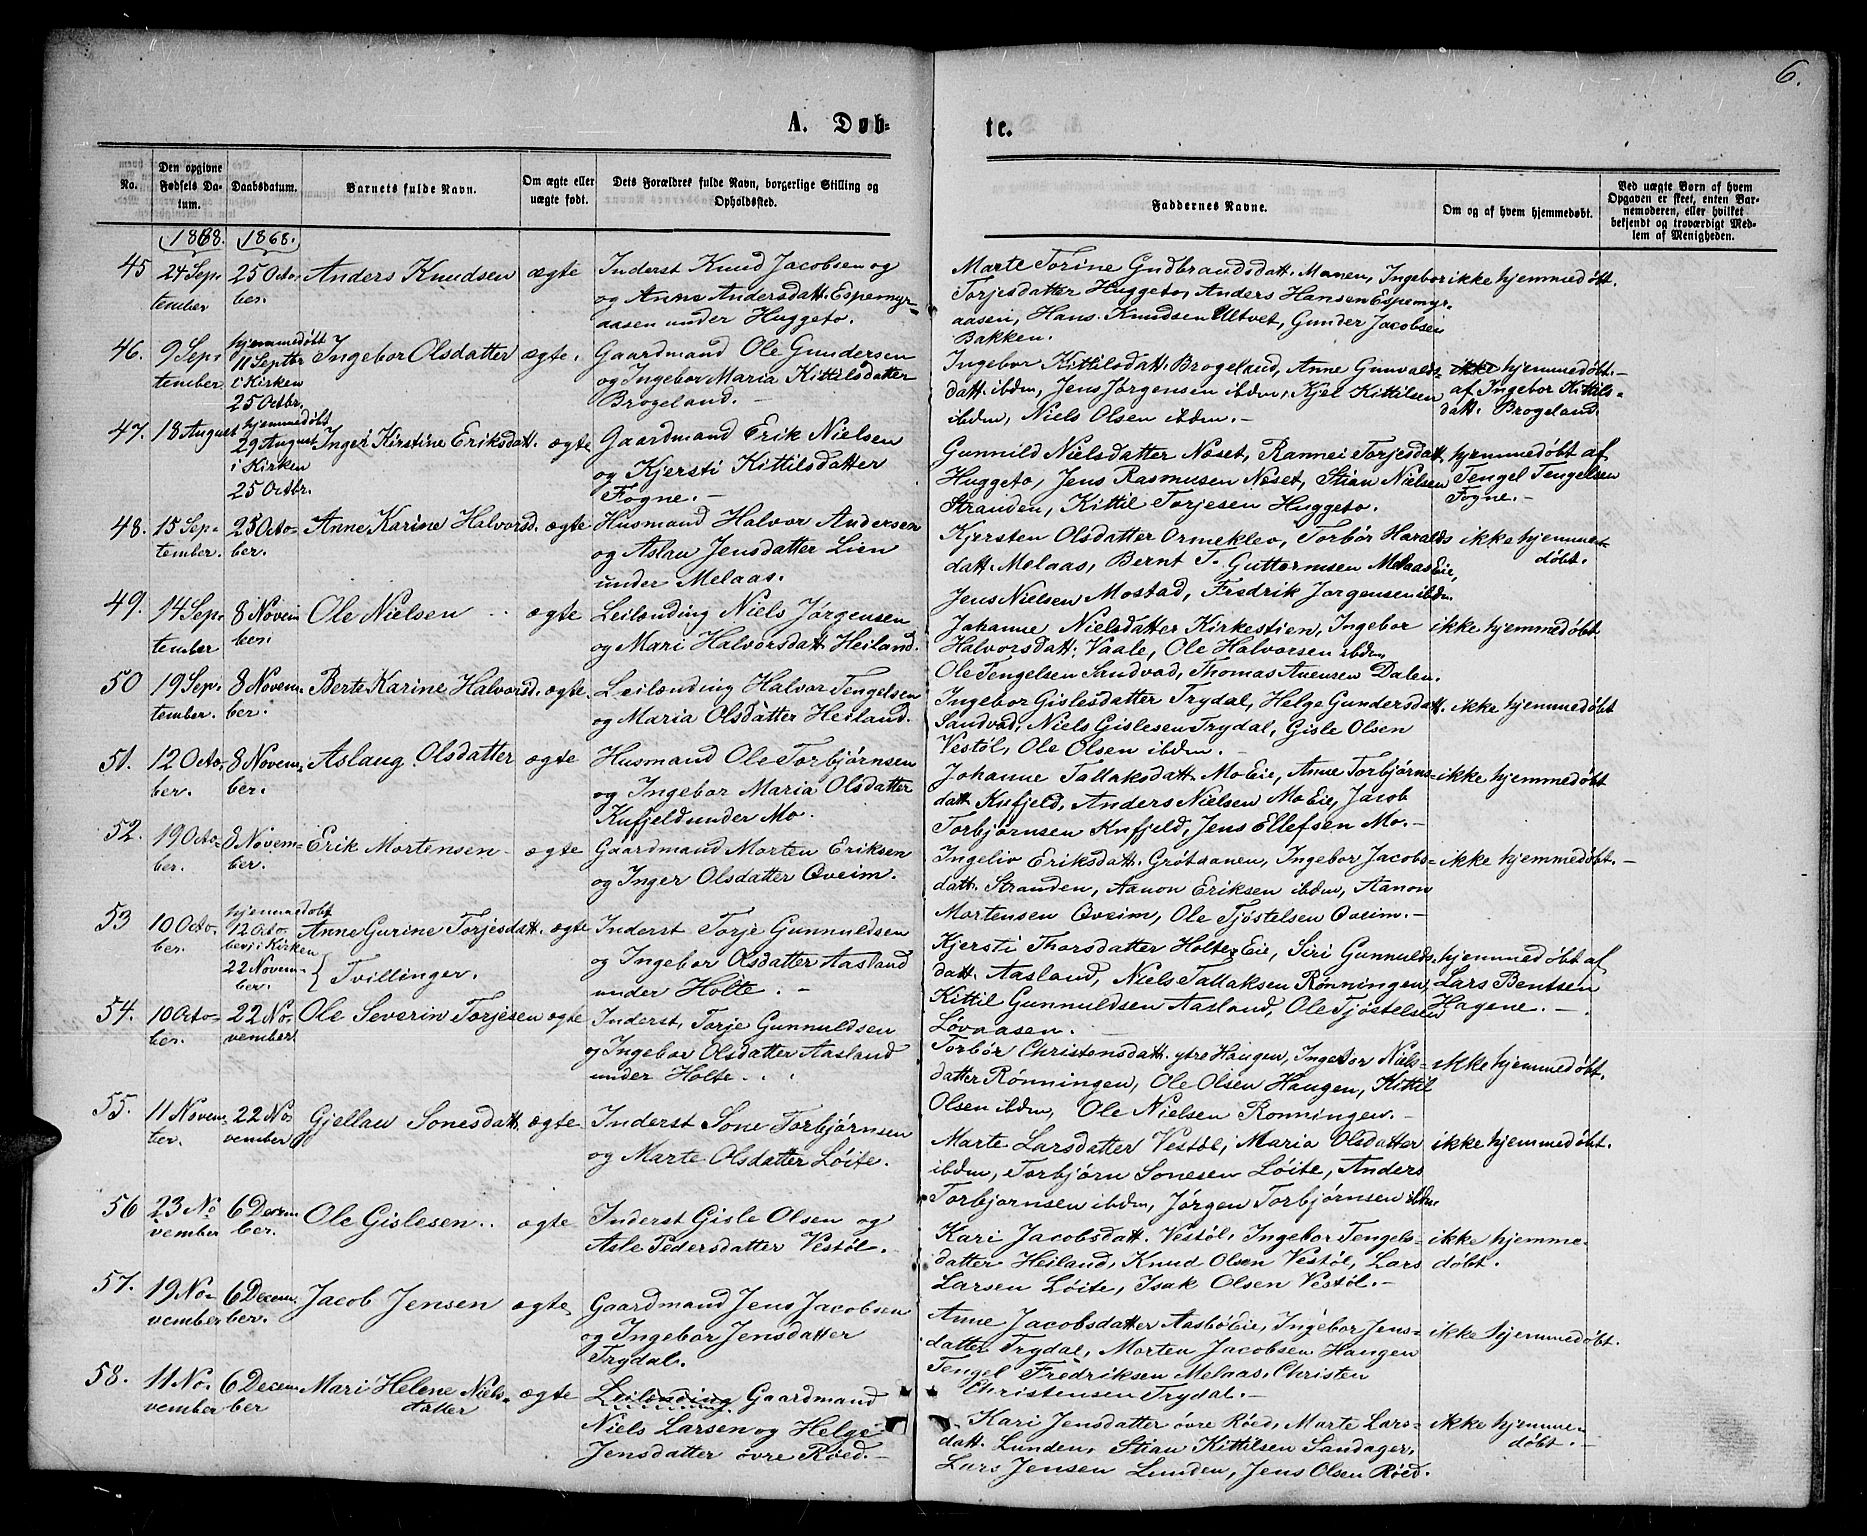 6.
A. Døb-
te.
No.
Den opgivne Fødsels Datum.
Daabsdatum.
Barnets fulde Navn.
Om ægte eller uægte født.
Dets Forældres fulde Navn, borgerlige Stilling og Opholdssted.
Faddernes Navne.
Om og af hvem hjemmedøbt.
Ved uægte Børn af hvem Opgaven er skeet, enten Barnemoderen, eller hvilket bekjendt og troværdigt Medlem af Menigheden.
1868. 1868.
45 24 Sep- 25 Octo- Anders Knudsen ægte Inderst Knud Jacobsen og
tember ber. og Anne Andersdatt. Espemyr-
aasen under Huggeto.
Marte Torine Gudbrandsdatt. Monen, Ingebor ikke hjemmedøbt.
Torjesdatter Huggeto, Anders Hansen Espemyr-
aasen, Hans Knudsen Ultvet, Gunder Jacobsen
Bakken.
46. 9 Sep- hjemmedøbt Ingebor Olsdatter ægte. Gaardmand Ole Gundersen
tember 11 Septbr og Ingebor Maria Kittilsdatter
i Kirken Brogeland. -
25 Octbr.
Ingebor Kittilsdatt. Brogeland, Anne Gunvalds- ikke hjemmedøbt. -
datt. ibdm, Jens Jørgensen ibdm, Kjel Kittilsen af Ingebor Kittils-
ibdm, Niels Olsen ibdm. - datt. Brogeland.
47. 18 August hjemmedøbt Inger Kirstine Eriksdatt. ægte Gaardmand Erik Nielsen
29 August og Kjersti Kittilsdatter
i Kirken Fogne. -
25 Octbr.
Gunnild Nielsdatter Næset, Rannei Torjesdatt. hjemmedøbt af
Huggeto, Jens Rasmusen Næset, Stian Nielsen Tengel Tengelsen
Stranden, Kittil Torjesen Huggeto. Fogne. -
48. 15 Sep- 25 Octo- Anne Karine Halvorsd. ægte Husmand Halvor Andersen
tember. ber. og Aslau Jensdatter Lien
under Melaas.
Kjersten Olsdatter Ormekleo, Torbør Haralds ikke hjemme-
datt. Melaas, Bernt T. Guttormsen Melaas Eie, døbt.
Jens Nielsen Mostad, Fredrik Jørgensen ibdm.
49. 14 Sep- 8 Novem Ole Nielsen ægte Leilænding Niels Jørgensen
tember ber. og Mari Halvorsdatt. Heiland.
Johanne Nielsdatter Kirkestien, Ingebor ikke hjemmedøbt
Halvorsdatt. Vaale, Ole Halvorsen ibdm,
Ole Tengelsen Sandvad, Thomas Auensen Dalen.
50 19 Sep- 8 Novem- Berte Karine Halvorsd. ægte. Leilænding Halvor Tengelsen
tember. ber. og Maria Olsdatter Heiland.
Ingebor Gislesdatter Trydal, Helge Gundersdatt. ikke hjemmedøbt
Sandvad, Niels Gislesen Trydal, Gisle Olsen
Vestøl, Ole Olsen ibdm. -
51. 12 Octo- 8 Novem- Aslaug Olsdatter ægte Husmand Ole Torbjørnsen
ber. ber. og Ingebor Maria Olsdatter
Knfjeld under Mo.
Johanne Tallaksdatt. Mo Eie, Anne Torbjørns- ikke hjemmedøbt
datt. Knfjeld, Anders Nielsen Mo Eie, Jacob
Torbjørnsen Knfjeld, Jens Ellefsen Mo. -
52. 19 Octo- 8 Novem- Erik Mortensen - ægte Gaardmand Morten Eriksen
ber. ber. og Inger Olsdatter Qveim.
Ingeliv Eriksdatt. Grøtaanen, Ingebor Jacobs- ikke hjemmedøbt. -
datt. Stranden, Aanon Eriksen ibdm, Aanon
Mortensen Qveim, Ole Tjøstelsen Qveim. -
53 10 Octo- hjemmedøbt Anne Gurine Torjesdatt. ægte Inderst Torje Gunnuldsen
ber. 12 Octo- og Ingebor Olsdatter Aasland
ber, i Kirken { Tvillinger. under Holte. -
22 Novem-
ber.
Kjersti Thorsdatter Holte Eie, Siri Gunnulds hjemmedøbt af
datt. Aasland, Niels Tallaksen Rønningen, Lars Bentsen
Kittil Gunnuldsen Aasland, Ole Tjøstelsen Hagene. -
Løvaasen.
54. 10 Octo- 22 No- Ole Severin Torjesen ægte Inderst, Torje Gunnuldsen
ber. vember og Ingebor Olsdatter Aasland
under Holte.
Torbør Christensdatt. ytre Haugen, Ingebor Niels- ikke hjemmedøbt.
datter Rønningen, Ole Olsen Haugen, Kittil
Olsen ibdm, Ole Nielsen Rønningen. -
55. 11 Novem 22 No- Gjellau Sonesdatt. ægte Inderst Sone Torbjørnsen
ber. vember og Marte Olsdatter Løite.
Marte Larsdatter Vestøl, Maria Olsdatter ikke hjemmedøbt.
ibdm, Torbjørn Sonesen Løite, Anders
Torbjørnsen ibdm, Jørgen Torbjørnsen ibdm
56 23 No 6 Decem Ole Gislesen ægte Inderst Gisle Olsen og
vember ber. Asle Pedersdatter Vestøl. -
Kari Jacobsdatt. Vestøl, Ingebor Tengels- ikke hjemme-
datter Heiland, Knud Olsen Vestøl, Lars døbt.
Larsen Løite, Isak Olsen Vestøl. -
57. 19 No- 6 Decem. Jacob Jensen ægte Gaardmand Jens Jacobsen
vember ber. og Ingebor Jensdatter
Trydal.
Anne Jacobsdatter Aasbø Eie, Ingebor Jens- ikke hjemmedøbt.
datter Trydal, Morten Jacobsen Haugen
Tengel Fredriksen Melaas, Christen
Christensen Trydal. -
58. 11 No- 6 Decem Mari Helene Niels- ægte Leilænding Gaardmand
vember ber datter Niels Larsen og Helge
Jensdatter øvre Røed. -
Kari Jensdatter øvre Røed, Marte Lars- ikke hjemme-
datt. Lunden, Stian Kittilsen Sandager, døbt. -
Lars Jensen Lunden, Jens Olsen Røed.